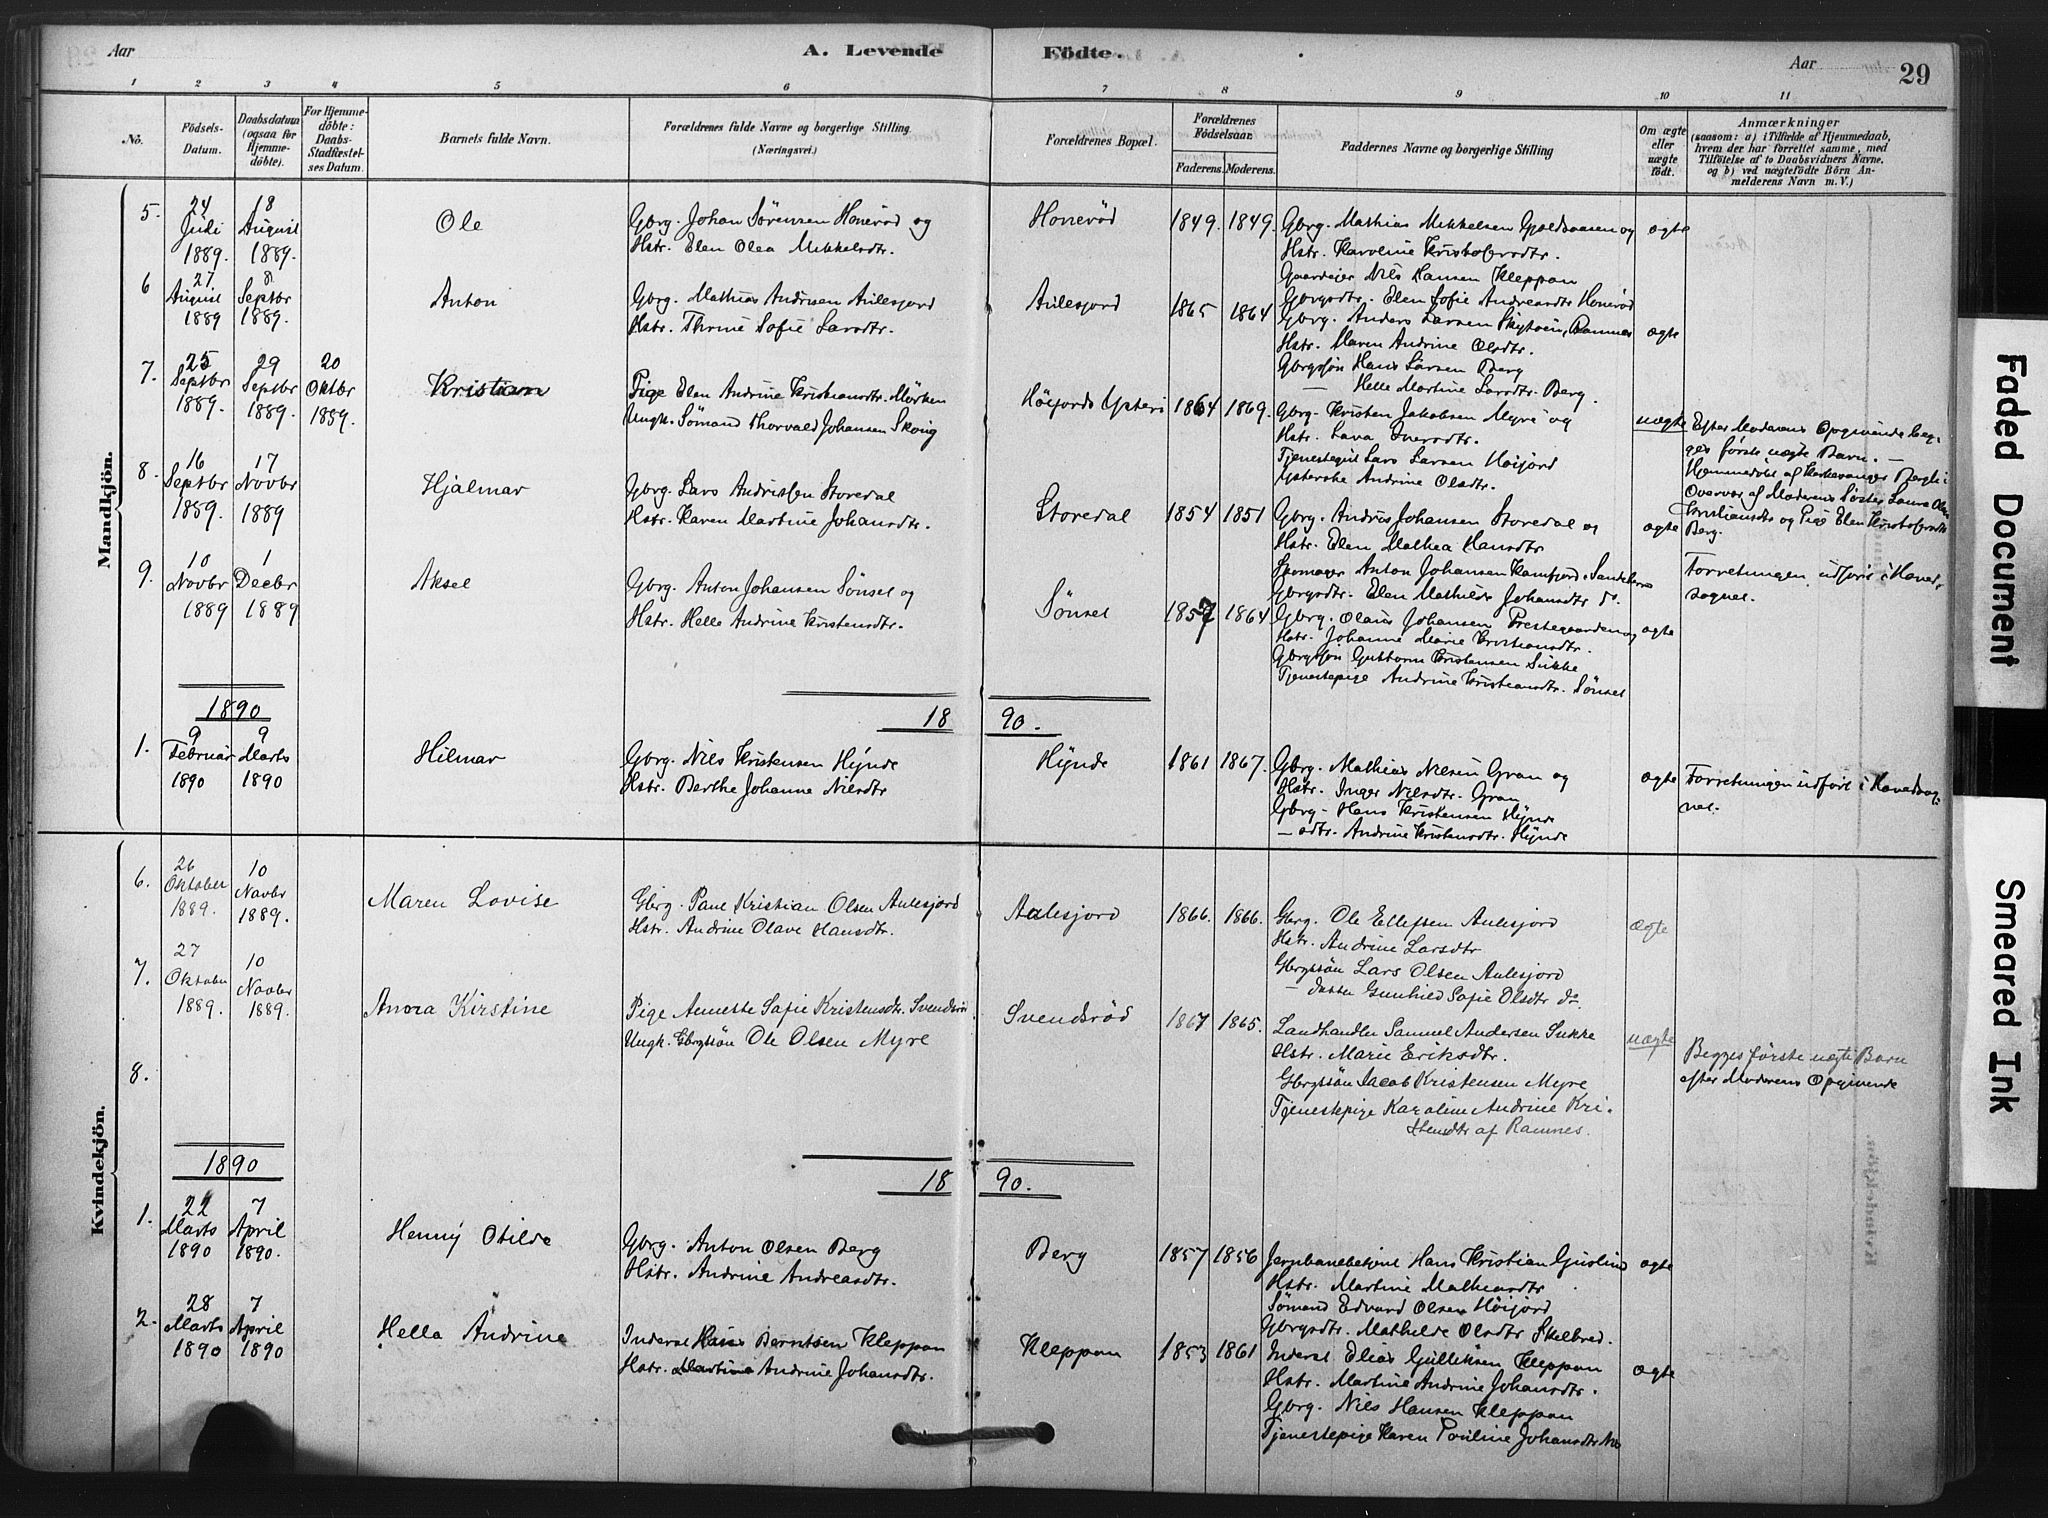 Aar
A. Levende
Födte.
Aar
29
1 2 3 4 5 6 7 8 9 10 11
No.
Födsels-
Datum.
Daabsdatum
(ogsaa for
Hjemme-
döbte).
For Hjemme-
döbte:
Daabs-
Stadfæstel-
ses Datum.
Barnets fulde Navn.
Forældrenes fulde Navne og borgerlige Stilling
(Næringsvei.)
Forældrenes Bopæl.
Forældrenes
Födselsaar.
Faderens.
Moderens.
Faddernes Navne og borgerlige Stilling
Om ægte
eller
uægte
födt.
Anmærkninger
(saasom: a) i Tilfælde af Hjemmedaab,
hvem der har forrettet samme, med
Tilföielse af to Daabsvidners Navne.
og b) ved uægtefödte Börn An-
melderens Navn m. V.)
Mandkjön.
5.
24
Juli
1889.
18
August
1889.
Ole
Gbrg. Johan Sørensen Honerød og
Hstr. Elen Olea Mikkelsdtr.
Honerød
1849. 1849.
Gbrg. Mathias Mikkelsen Gjøldsaasen og
Hstr. Karoline Kristofersdtr.
Gaardejer Nils Hansen Kleppan
Gbrgsdtr. Elen Sofie Andreasdtr Honerød
ægte
6
27
August
1889
8
Septbr
1889.
Anton
Gbrg. Mathias Andersen Aulesjord
Hstr. Thrine Sofie Larsdtr.
Aulesjord
1865 1864
Gbrg. Anders Larsen Skytøen, Ramnes
Hstr. Maren Andrine Olsdtr.
Gbrgsøn Hans Larsen Berg
— Helle Martine Larsdtr. Berg.
ægte
7.
25
Septbr
1889.
29
Septbr
1889.
20
Oktbr
1889.
Kristian
Pige Elen Andrine Kristiansdtr. Mörken
Ungk. Sømand Thorvald Johansen Skoug
Høijords Ysteri
1864 1869.
Gbrg. Kristen Jakobsen Myre og
Hstr. Lava Iversdtr.
Tjenestegut Lars Larsen Høijord
Ysterske Andrine Olsdtr.
uægte
Efter Moderens Opgivende beg-
ges første uægte Barn. —
Hjemmedøbt af Kirkesanger Bergli i
Overvær af Moderens Søster Laura Olea
Kristiansdtr og Pige Elen Kristofersdtr
Berg.
8.
16
Septbr
1889.
17
Novbr
1889
Hjalmar
Gbrg. Lars Andersen Storedal
Hstr. Karen Martine Johansdtr.
Storedal
1854 1851
Gbrg. Andrias Johansen Storedal og
Hstr. Elen Mathea Hansdtr
Skomager Anton Johansen Kamfjord, Sandeherred
Gbrgsdtr. Elen Mathilde Johansdtr do.
ægte
9.
10
Novbr
1889
1
Decbr
1889
Aksel
Gbrg. Anton Johansen Sønset og
Hstr. Helle Andrine Kristensdtr.
Sønset
1857 1864
Gbrg. Olaus Johansen Prestegaarden og
Hstr. Johanne Marie Kristiansdtr.
Gbrgssøn Guttorm Kristensen Sukke
Tjenestepige Andrine Kristiansdtr. Sønset
ægte
Forretningen udført i Hoved-
sognet.
1890
18 90.
1.
9
Februar
1890
9
Marts
1890
Hilmar
Gbrg. Nils Kristensen Hynde
Hstr. Berthe Johanne Nilsdtr
Hynde
1861 1867.
Gbrg. Mathias Nilsen Gran og
Hstr. Inger Nilsdtr. Gran
Gbrg. Hans Kristensen Hynde
— sdtr. Andrine Kristensdtr. Hynde
ægte
Forretningen udført i Hovedsog-
net.
Kvindekjön.
6.
26
Oktober
1889.
10
Novbr
1889.
Maren Lovise
Gbrg. Paul Kristian Olsen Aulesjord
Hstr. Andrine Olave Hansdtr.
Aulesjord
1866. 1866.
Gbrg. Ole Ellefsen Aulesjord
Hstr. Andrine Larsdtr
Gbrgssön Lars Olsen Aulesjord
— datter Gunhild Sofie Olsdtr do
ægte
7.
27
Oktober
1889.
10
Novbr
1889.
Anora Kirstine
Pige Annette Sofie Kristensdtr. Svendsrød
Ungk. Gbrgssön Ole Olsen Myre
Svendsrød
1867 1865.
Landhandler Samuel Andersen Sukke
Hstr. Marie Eriksdtr.
Gbrgssön Jacob Kristensen Myre
Tjenestepige Karoline Andrine Kri-
stensdtr af Ramnes.
uægte
Begges første uægte Barn
efter Moderens Opgivende
8.
1890
18 90.
1.
22
Marts
1890
7
April
1890.
Henny Otilde
Gbrg. Anton Olsen Berg
Hstr. Andrine Andreasdtr.
Berg
1857 1856
Jernbanebetjent Hans Kristian
Hstr. Martine Mathiasdtr
Sømand Edvard Olsen Høijord
Gbrgsdtr. Mathilde Olsdtr Skelbred.
ægte
2.
28
Marts
1890
7
April
1890
Hella Andrine
Inderst Hans Berntsen Kleppan
Hstr. Martine Andrine Johansdtr.
Kleppan
1853 1861
Inderst Elias Gulliksen Kleppan
Hstr. Martine Andrine Johansdtr.
Gbrg. Nils Hansen Kleppan
Tjenestepige Karen Pouline Johansdtr
ægte
Faded Document
Smeared Ink